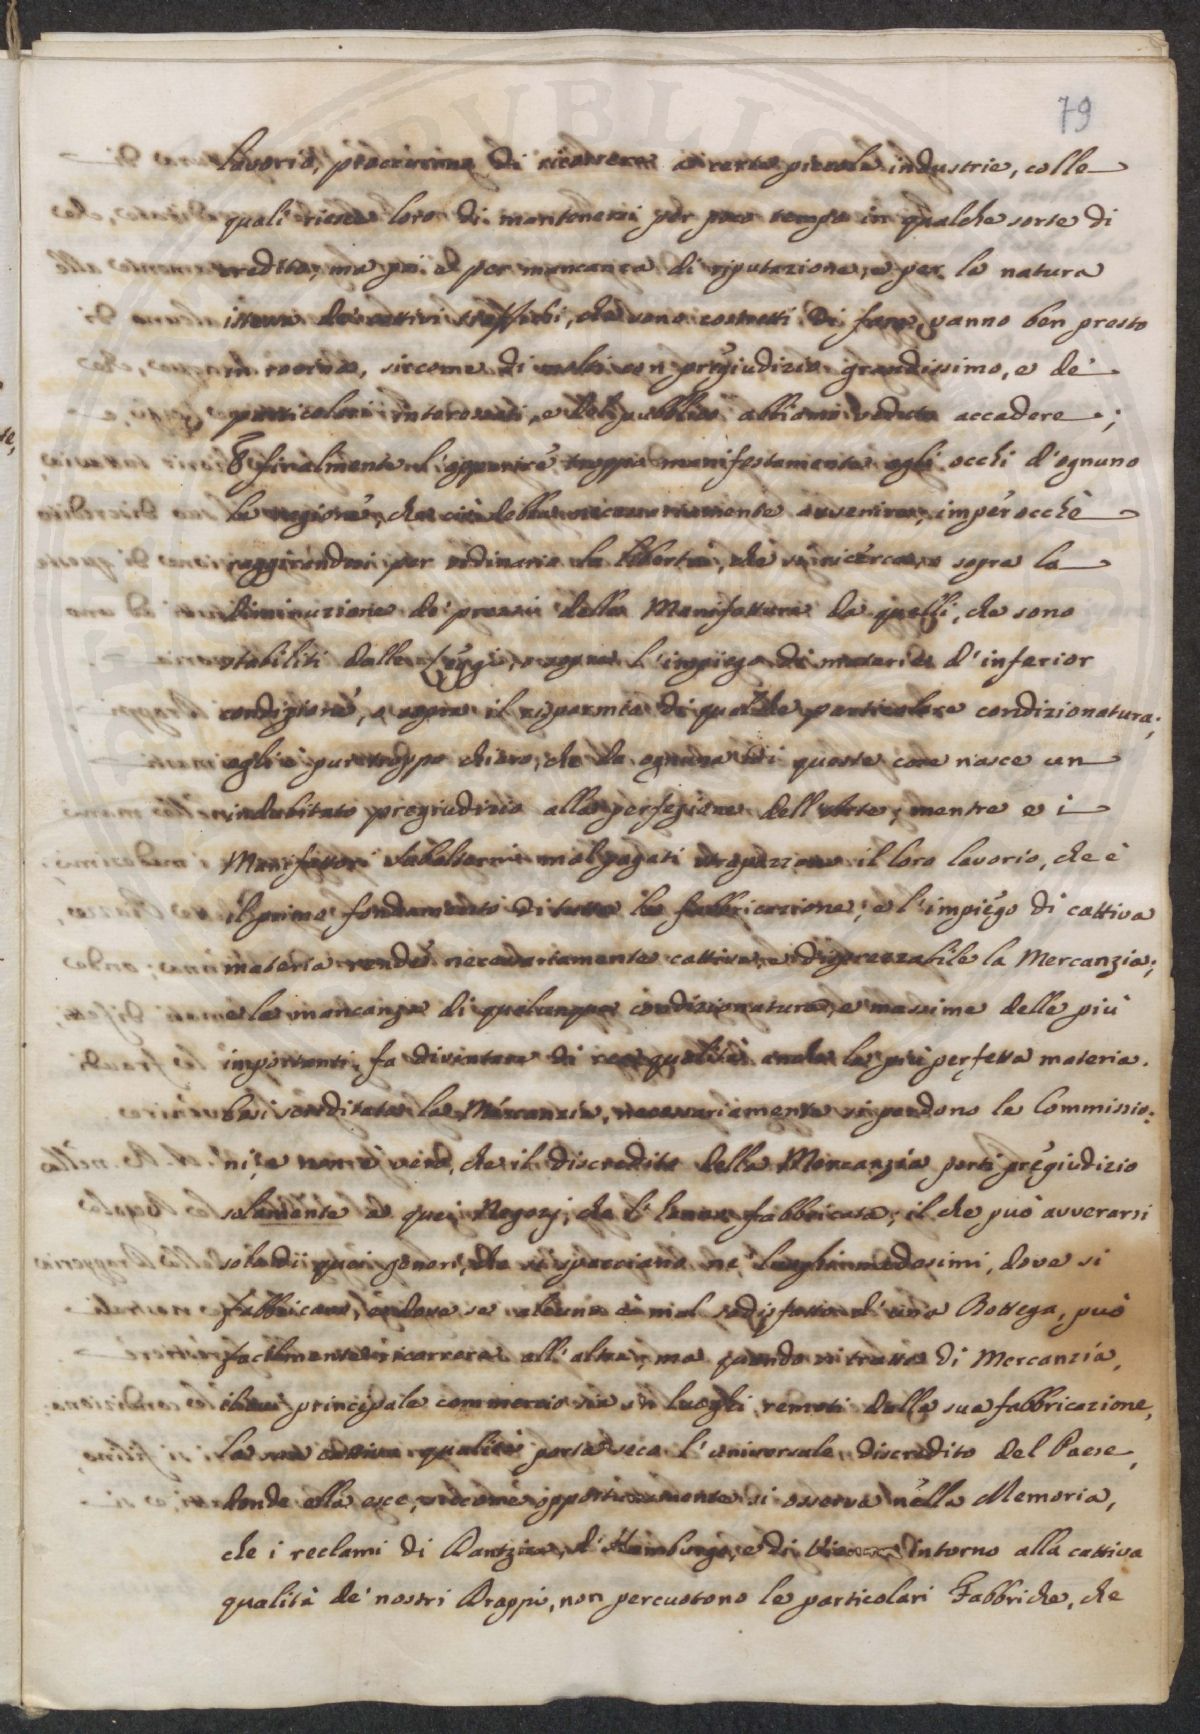 79
lavorio, procurino di ricorrere a certe piccole industrie, colle
quali riesce loro di mantenersi per poco tempo in qualche sorte di
credito; ma poi e per mancanza di riputazione, e per la natura
istessa de' cattivi traffichi, che sono costretti di fare, vanno ben presto
in rovina, siccome di molti con pregiudizio grandissimo, e de'
particolari interessati, e del pubblico abbiamo veduto accadere;
E finalmente l'apparire troppo manifestamente agli occhi d'ognuno
la ragione, che ciò debba necessariamente avvenire, imperocchè
raggirandosi per ordinario la libertà, che si ricerca, o sopra la
diminuzione de' prezzi della Manifattura da quelli, che sono
stabiliti dalle Leggi, o sopra l'impiego di materie d'inferior
condizione, o sopra il risparmio di qualche particolare condizionatura;
egli è pur troppo chiaro, che da ognuna di queste cose nasce un
indubitato pregiudizio alla perfezione dell'Arte, mentre e i
Manifattori subalterni mal pagati strapazzano il loro lavorio, che è
il primo fondamento di tutta la fabbricazione; e l'impiego di cattiva
materia rende necessariamente cattiva, e disprezzabile la Mercanzia;
e la mancanza di qualunque condizionatura, e massime delle più
importanti, fa diventare di rea qualità anche la più perfetta materia.
Così screditata la Mercanzia, necessariamente si perdono le Commissio:
ni, e non è vero, che il discredito della Mercanzia porti pregiudizio
solamente a quei Negozj, che l'hanno fabbricata; il che può avverarsi
solo di quei generi, che si spacciano ne' luoghi medesimi, dove si
fabbricano, e dove se alcuno è mal sodisfatto d'una Bottega, può
facilmente ricorrere all'altra; ma quando si tratta di Mercanzia,
il cui principale commercio sia in luoghi remoti dalla sua fabbricazione,
la sua cattiva qualità porta seco l'universale discredito del Paese,
donde ella esce, siccome opportunamente si osserva nella Memoria,
che i reclami di Dantzica, d'Hamburgo, e di Vienna intorno alla cattiva
qualità de' nostri Drappi, non percuotono le particolari Fabbriche, che